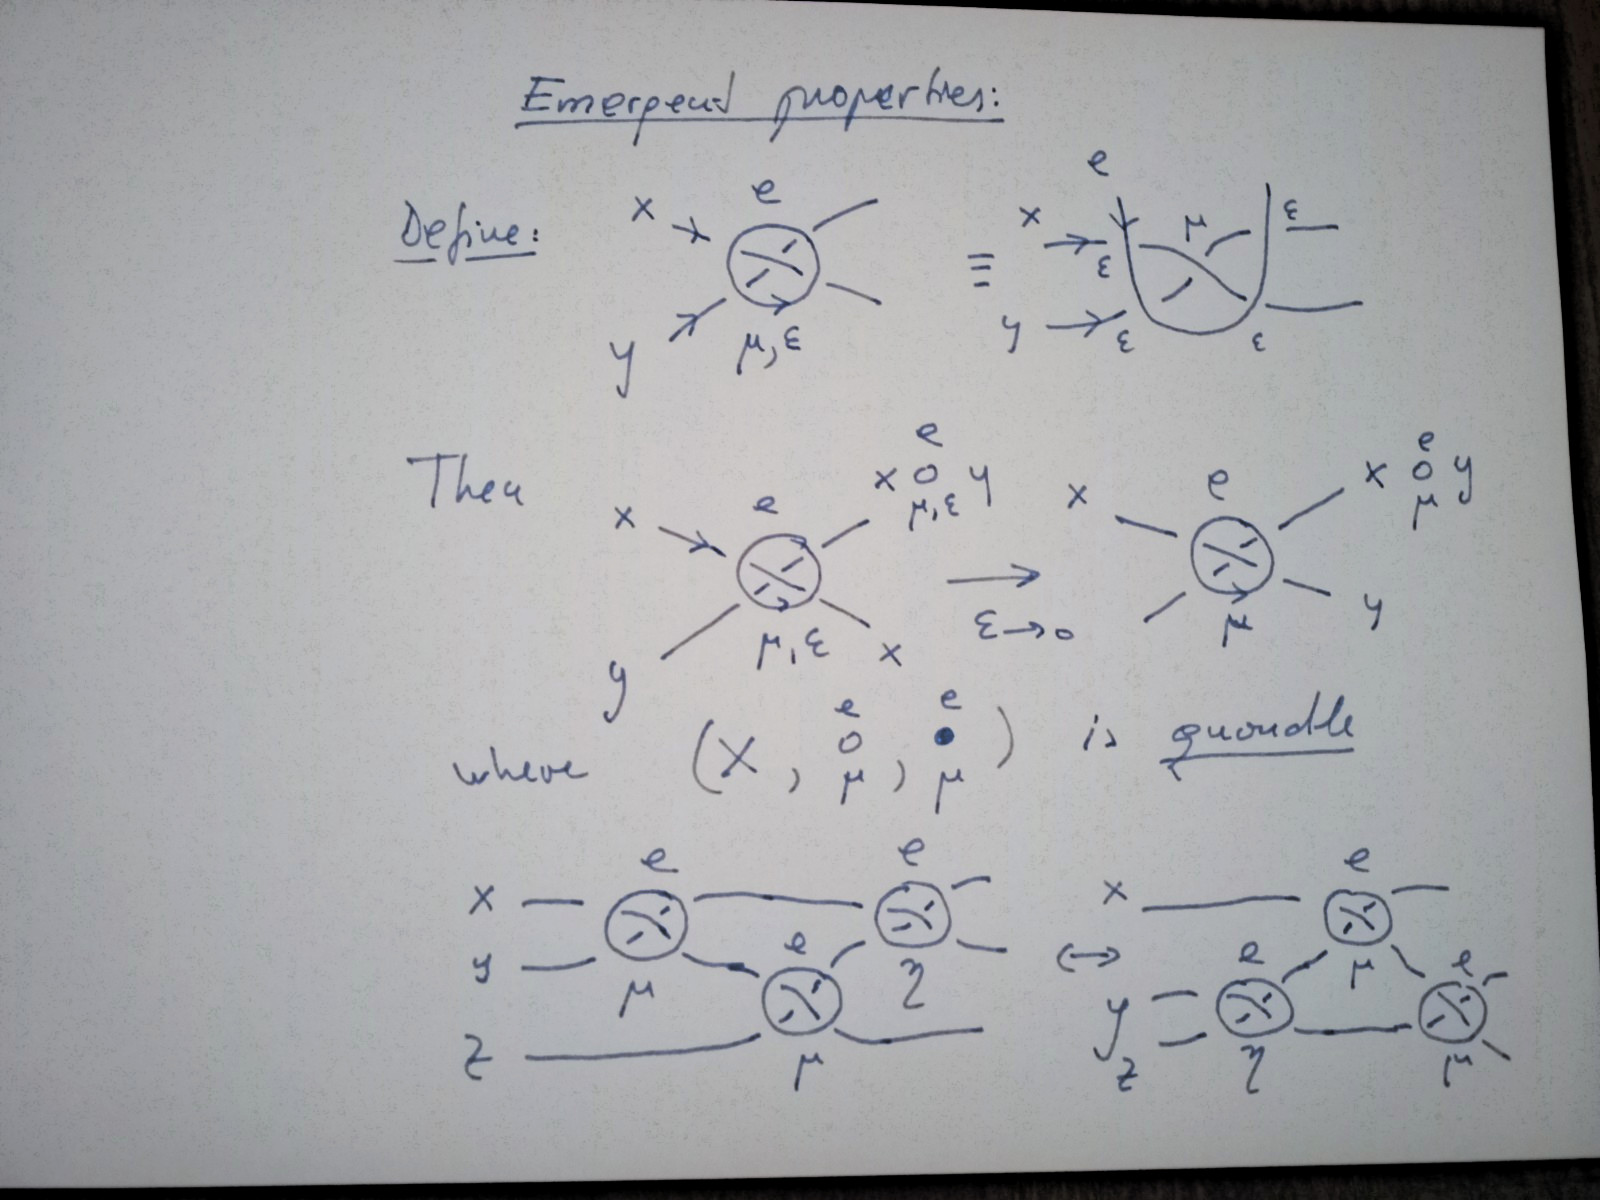 Emergent properties:
Define: x e y μ,ε ≡ e x ε μ ε y ε ε
Then x e y μ,ε x o e μ,ε y x → ε→0 x e μ x o e μ y y
where (X, o e μ, • e μ) is quandle
x y z e μ e μ e η ↔ x y z e η e μ e μ